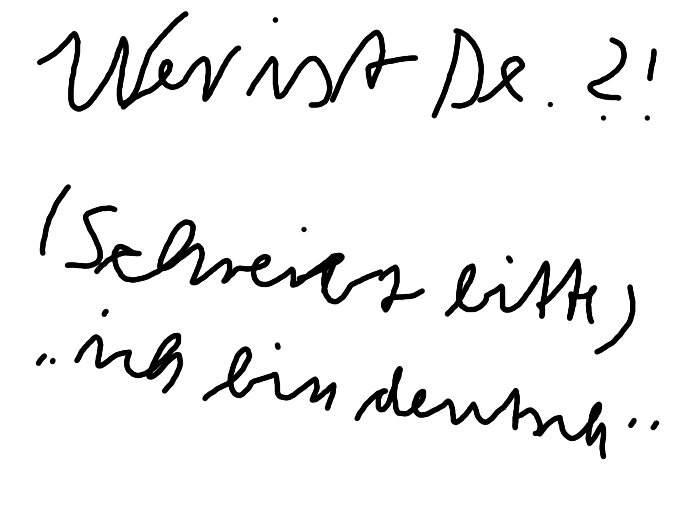 Wer ist De. ?!
(Schreibt bitte,
"ich bin deutsch"